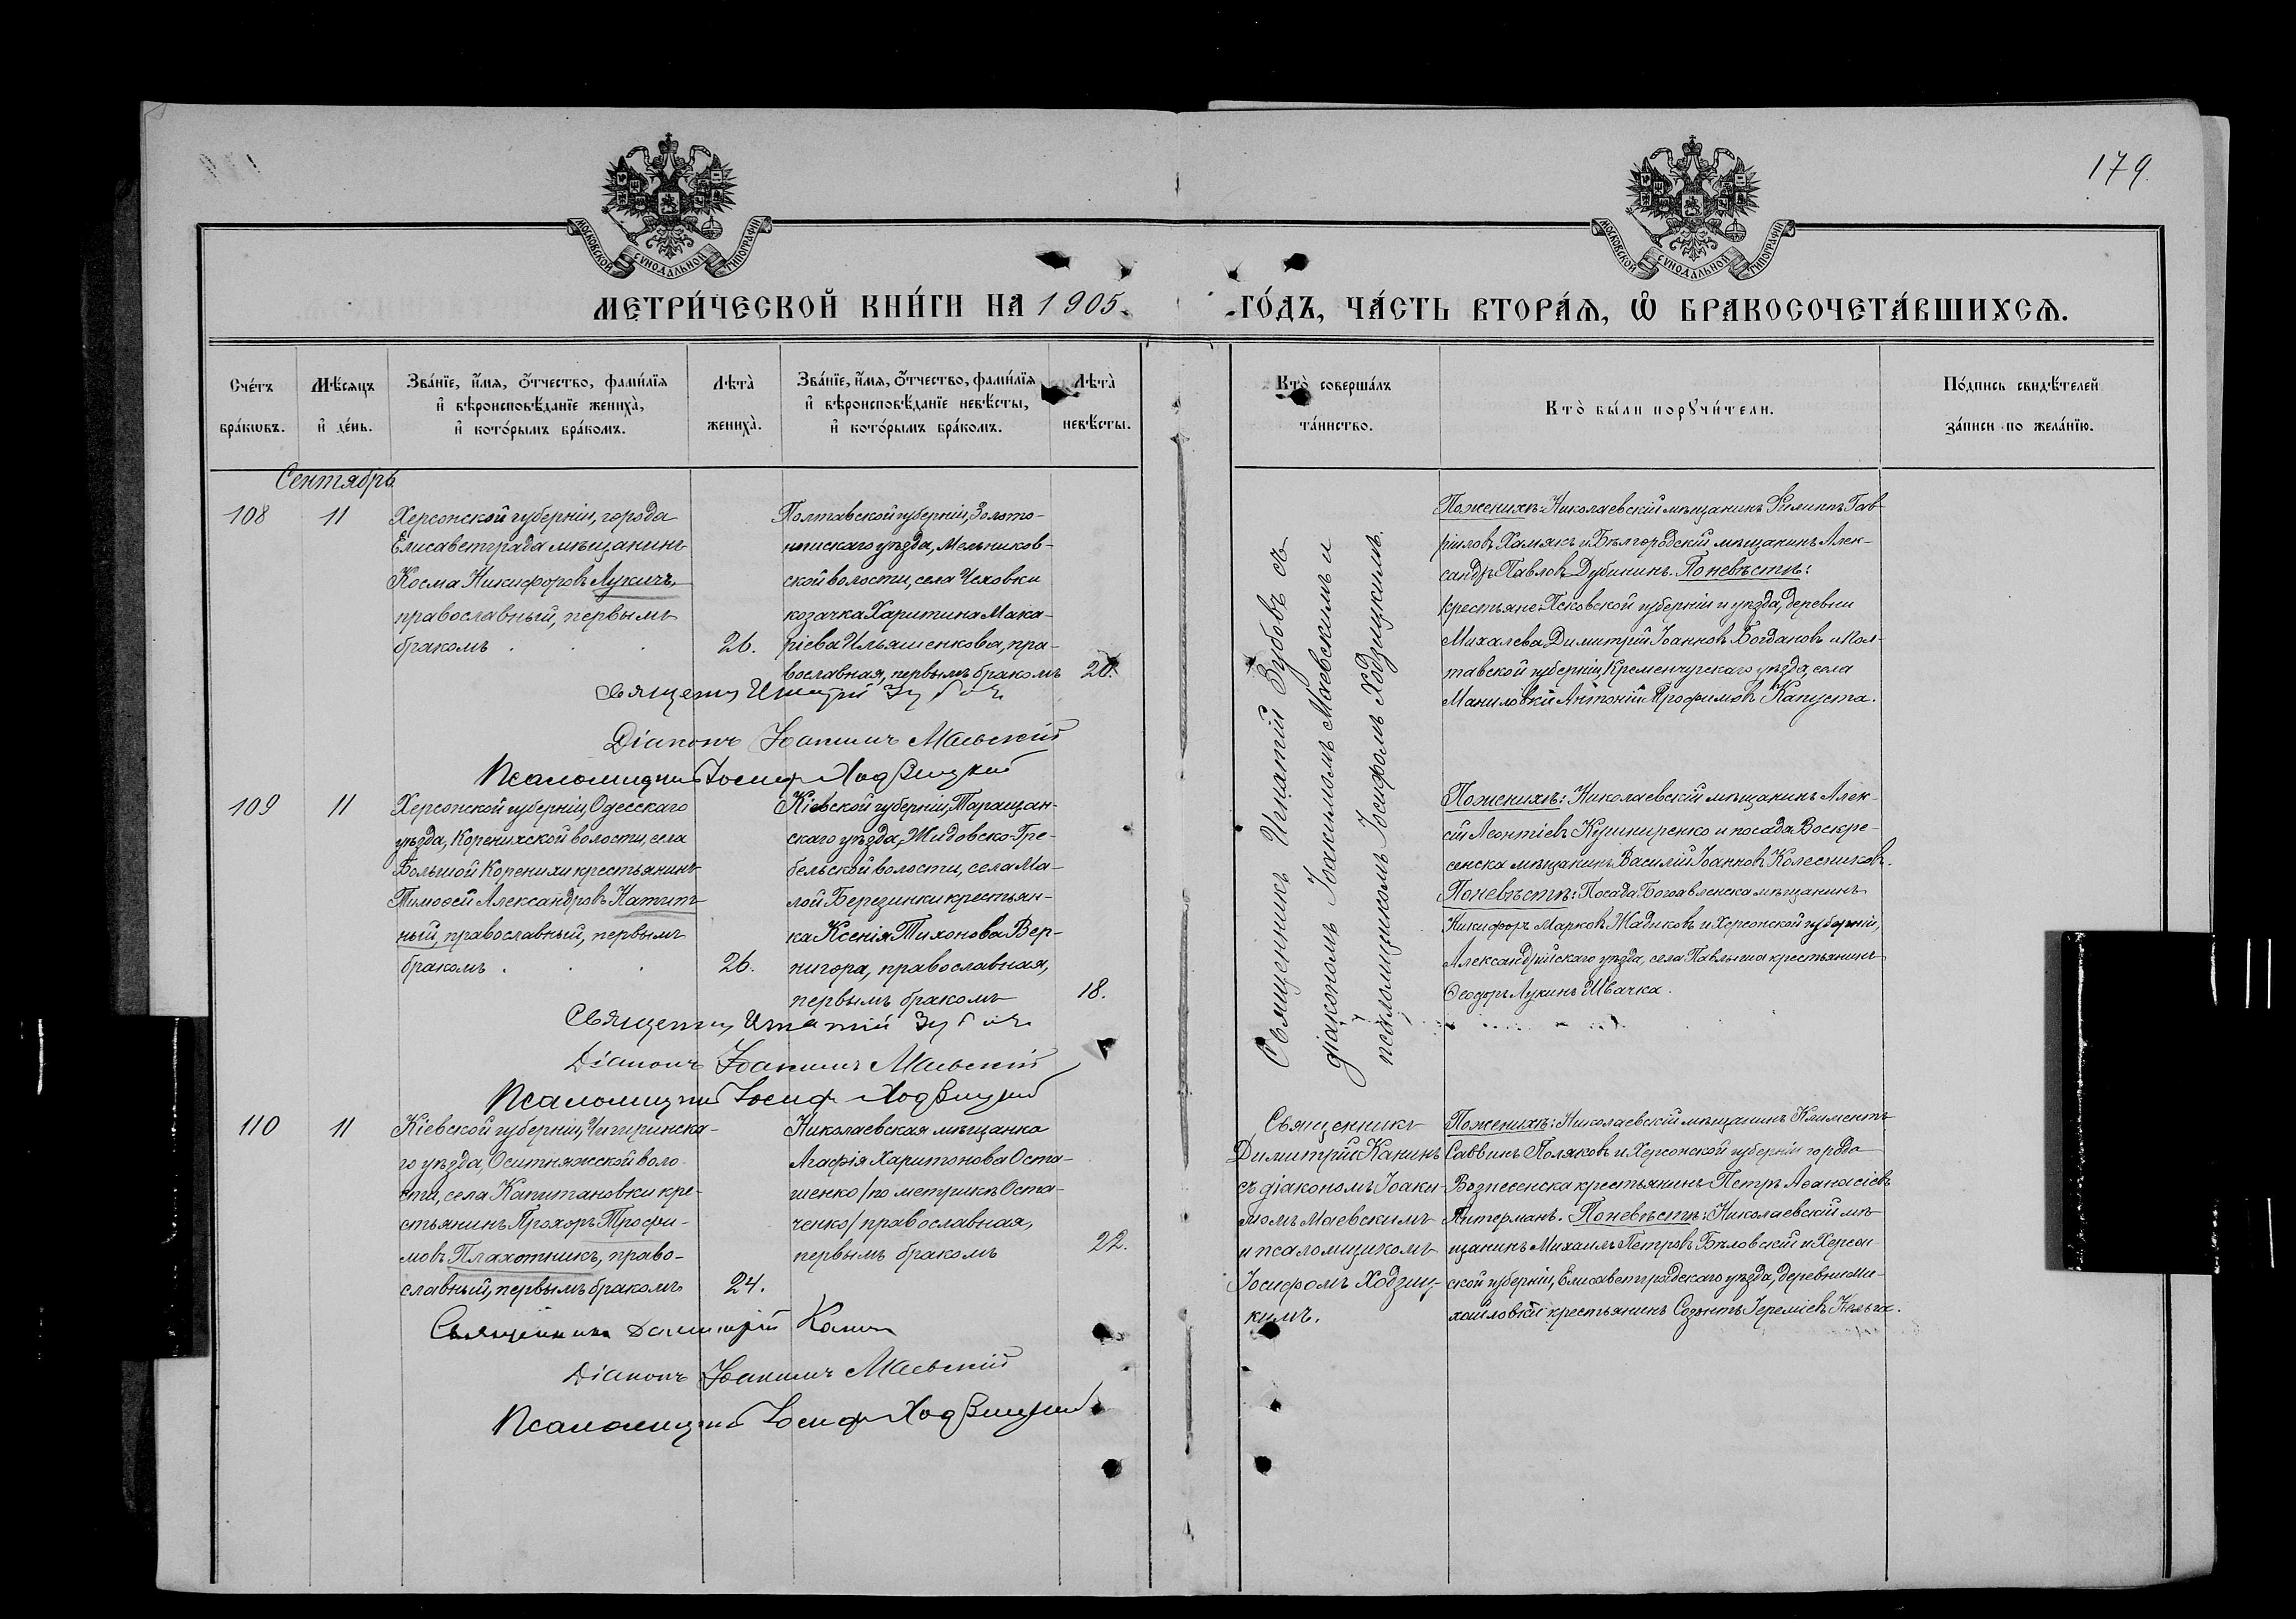 179.
МОСКОВСКОЙ СѴНОДАЛЬНОЙ ТИПОГРАФІИ
МОСКОВСКОЙ СѴНОДАЛЬНОЙ ТИПОГРАФІИ
МЕТРИ́ЧЕСКОЙ КНИ́ГИ НА 1905.
ГО́ДЪ, ЧА́СТЬ ВТОРА́Ѧ, Ѽ БРАКОСОЧЕТА́ВШИХСѦ.
Сче́тъ
бра́кѡвъ.
Мѣ́сѧцъ
и҆ де́нь.
Зва́нїе, и҆́мѧ, ѻ҆́тчество, фами́лїѧ
и҆ вѣроисповѣ́данїе жениха̀,
и҆ кото́рымъ бра́комъ.
Лѣта̀
жениха̀.
Зва́нїе, и҆́мѧ, ѻ҆́тчество, фами́лїѧ
и҆ вѣроисповѣ́данїе невѣ́сты,
и҆ кото́рымъ бра́комъ.
Лѣта̀
невѣ́сты.
Кто̀ соверша́лъ
та́инство.
Кто̀ бы́ли порꙋчи́тели.
По́дпись свидѣ́телей
за́писи по жела́нїю.
Сентябрь
108
11
Херсонской губерніи, города
Елисаветграда мѣщанинъ
Косма Никифоровъ Лукичъ,
православный, первымъ
бракомъ . . .
26.
Полтавской губерніи, Золото-
ношскаго уѣзда, Мельников-
ской волости, села Чеховки
козачка Харитина Мака-
ріева Ильяшенкова, пра-
вославная, первымъ бракомъ
20.
Священникъ Игнатій Зубовъ съ
діакономъ Іоакимомъ Маевскимъ и
псаломщикомъ Іосифомъ Ходзицкимъ.
По женихѣ: Николаевскій мѣщанинъ Филиппъ Гав-
ріиловъ Хамякъ и Бѣлгородскій мѣщанинъ Алек-
сандръ Павловъ Дубининъ. По невѣстѣ:
крестьяне: Псковской губерніи и уѣзда, деревни
Михалева Димитрій Іоанновъ Богдановъ и Пол-
тавской губерніи, Кременчугскаго уѣзда, села
Маниловки Антоній Трофимовъ Капуста.
Священникъ Игнатій Зубовъ
Діаконъ Іоакимъ Маевскій
Псаломщикъ Іосифъ Ходзицкій
109
11
Херсонской губерніи, Одесскаго
уѣзда, Коренихской волости, села
Большой Коренихи крестьянинъ
Тимоѳей Александровъ Капит-
ный, православный, первымъ
бракомъ . . .
26.
Кіевской губерніи, Таращан-
скаго уѣзда, Жидовско-Гре-
бельской волости, села Ма-
лой Березинки крестьян-
ка Ксенія Тихонова Вер-
нигора, православная,
первымъ бракомъ
18.
По женихѣ: Николаевскій мѣщанинъ Алек-
сій Леонтіевъ Кушниренко и посада Воскре-
сенска мѣщанинъ Василій Іоанновъ Колесниковъ.
По невѣстѣ: Посада Богоявленска мѣщанинъ
Никифоръ Марковъ Жадиковъ и Херсонской губерніи,
Александрійскаго уѣзда, села Павлыша крестьянинъ
Ѳеодоръ Лукинъ Швачка.
Священникъ Игнатій Зубовъ
Діаконъ Іоакимъ Маевскій
Псаломщикъ Іосифъ Ходзицкій
110
11
Кіевской губерніи, Чигиринска-
го уѣзда, Оситняжской воло-
сти, села Капитановки кре-
стьянинъ Прохоръ Трофи-
мовъ Плахотникъ, право-
славный, первымъ бракомъ
24.
Николаевская мѣщанка
Агафія Харитонова Оста-
шенко /по метрикѣ Оста-
ченко/ православная,
первымъ бракомъ
22.
Священникъ
Димитрій Канинъ
съ діакономъ Іоаки-
момъ Маевскимъ
и псаломщикомъ
Іосифомъ Ходзиц-
кимъ.
По женихѣ: Николаевскій мѣщанинъ Климентъ
Саввинъ Поляковъ и Херсонской губерніи города
Вознесенска крестьянинъ Петръ Аѳанасіевъ
Антерманъ. По невѣстѣ: Николаевскій мѣ-
щанинъ Михаилъ Петровъ Бѣловскій и Херсон-
ской губерніи, Елисаветградскаго уѣзда, деревни Ми-
хайловки крестьянинъ Созонтъ Іереміевъ Кальга.
Священникъ Димитрій Канинъ
Діаконъ Іоакимъ Маевскій
Псаломщикъ Іосифъ Ходзицкій